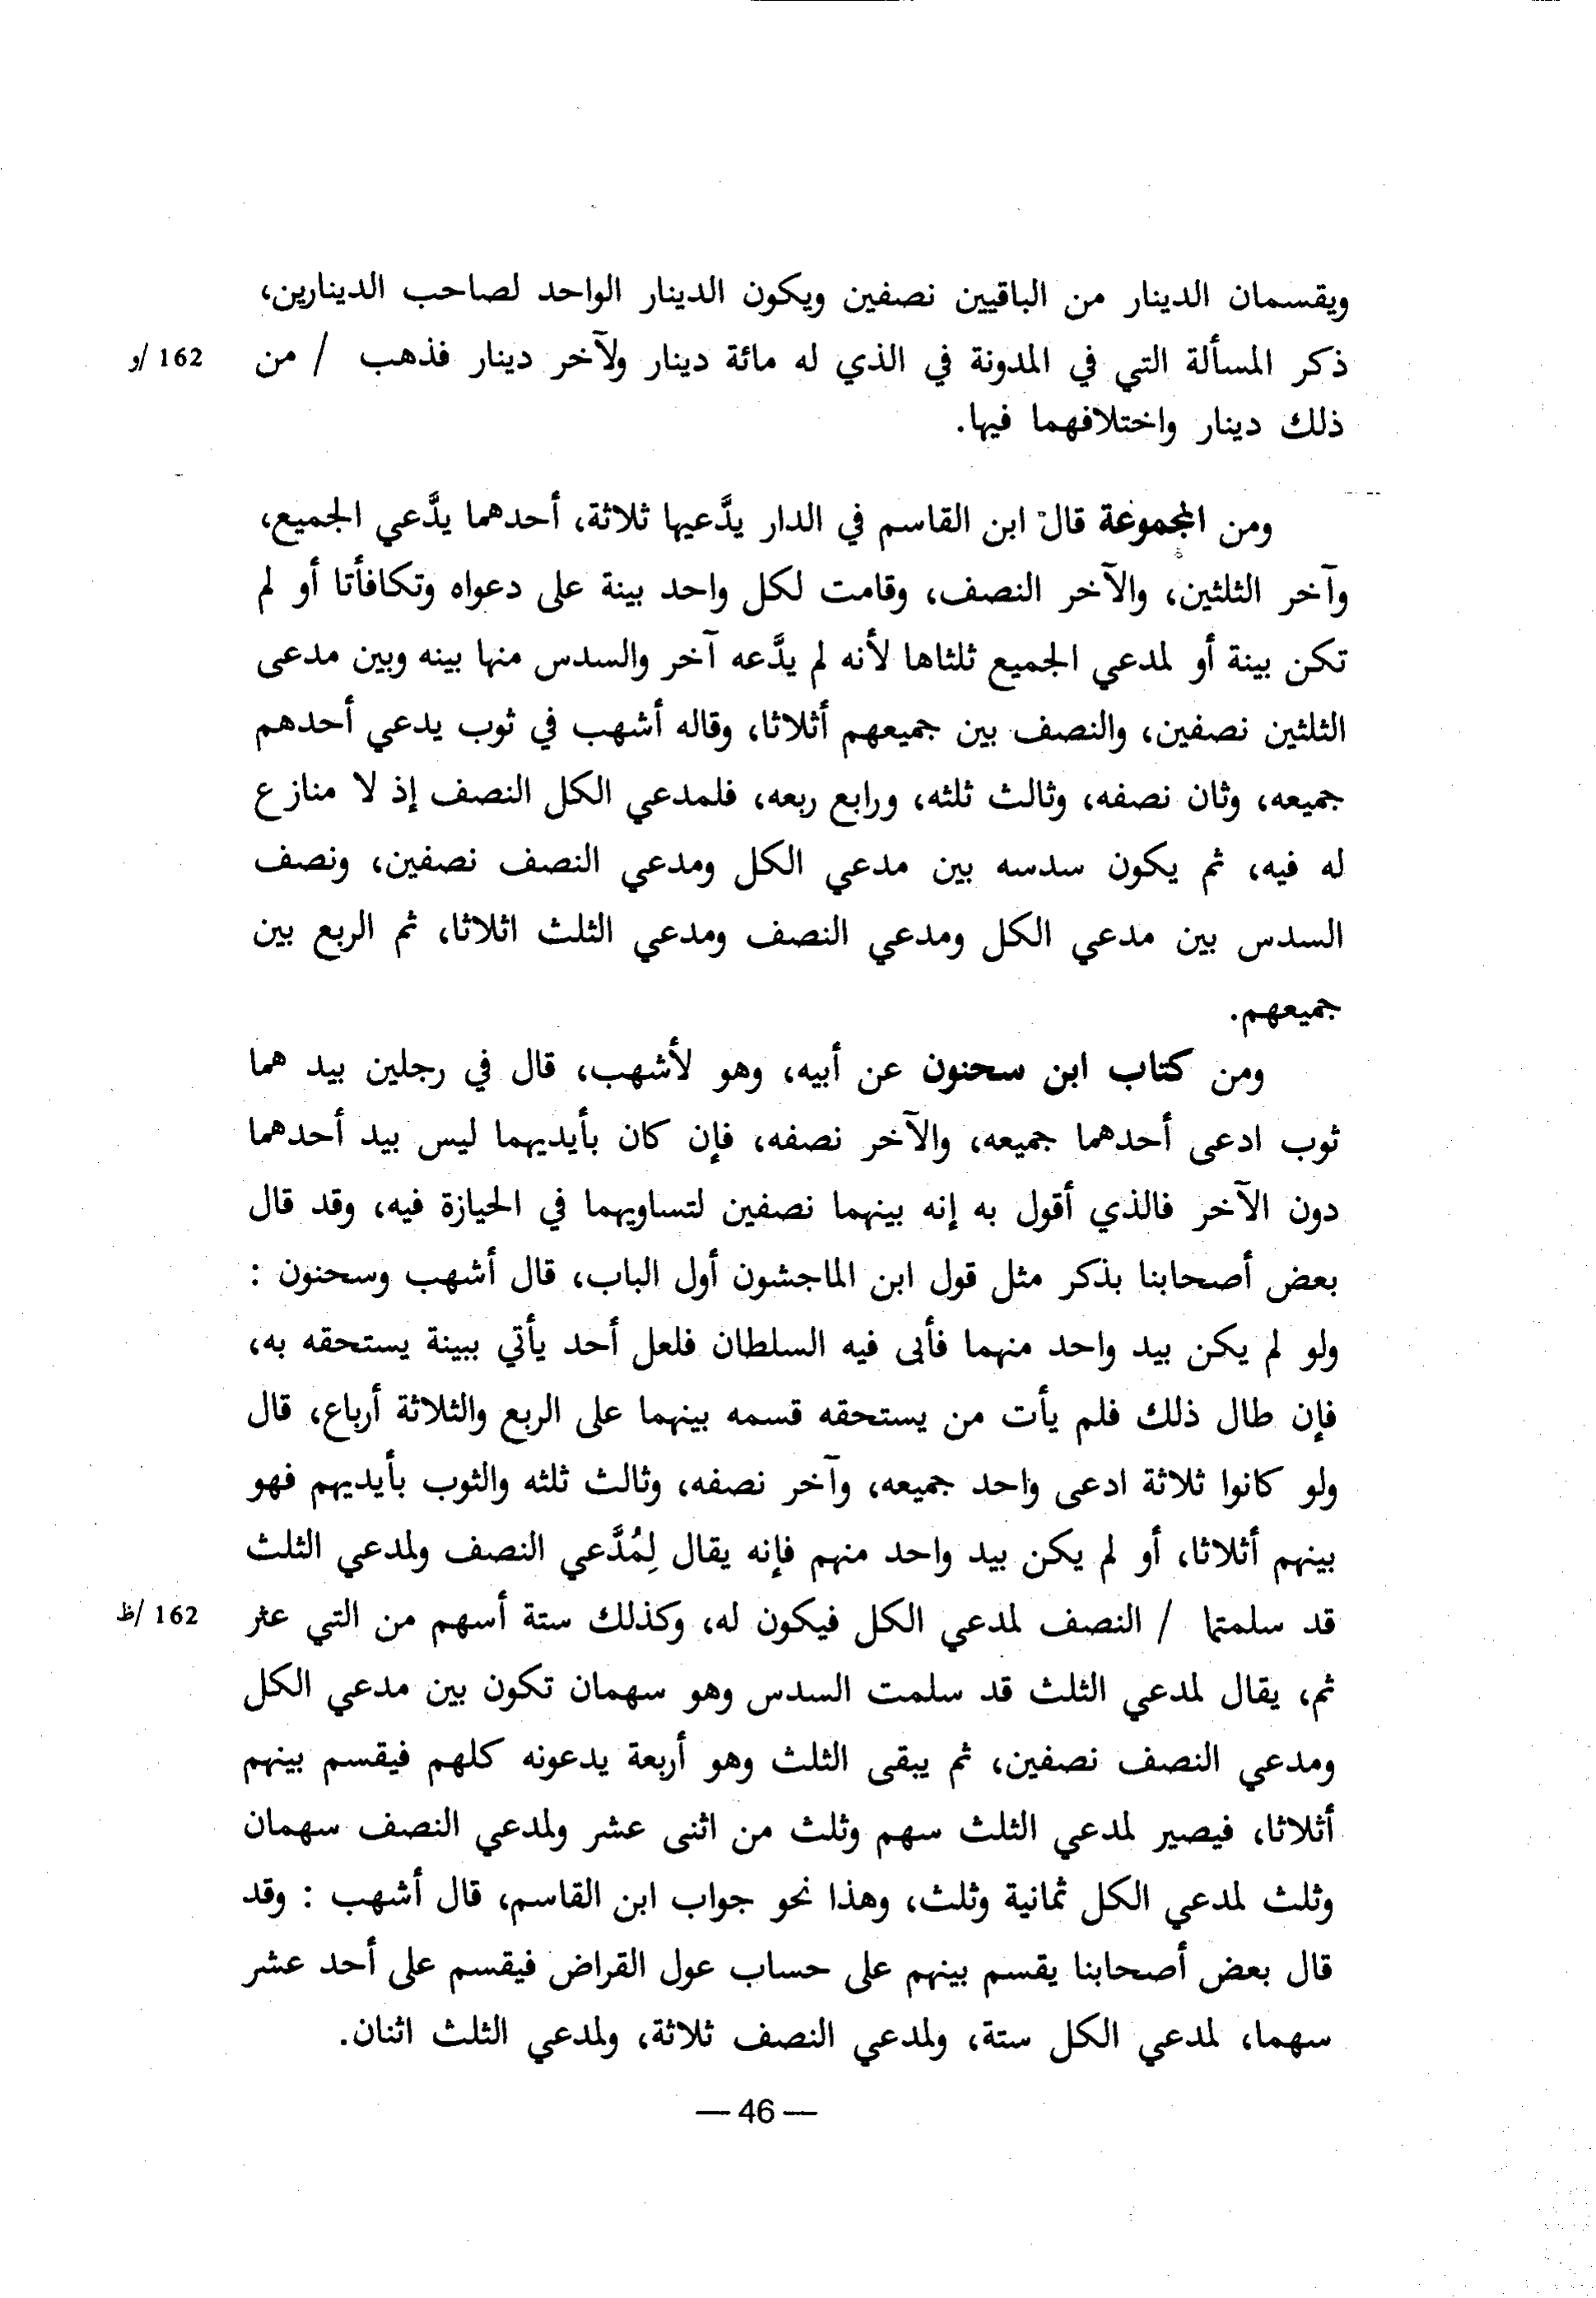 ويقسمان الدينار من الباقيين نصفين ويكون الدينار الواحد لصاحب الدينارين،
ذكر المسألة التي في المدونة في الذي له مائة دينار ولآخر دينار فذهب / من 162 /و
ذلك دينار واختلافهما فيها.
ومن المجموعة قال ابن القاسم في الدار يدَّعيها ثلاثة، أحدهما يدَّعي الجميع،
وآخر الثلثين، والآخر النصف، وقامت لكل واحد بينة على دعواه وتكافأتا أو لم
تكن بينة أو لمدعي الجميع ثلثاها لأنه لم يدَّعه آخر والسدس منها بينه وبين مدعى
الثلثين نصفين، والنصف بين جميعهم أثلاثا، وقاله أشهب في ثوب يدعي أحدهم
جميعه، وثان نصفه، وثالث ثلثه، ورابع ربعه، فلمدعي الكل النصف إذ لا منازع
له فيه، ثم يكون سدسه بين مدعي الكل ومدعي النصف نصفين، ونصف
السدس بين مدعي الكل ومدعي النصف ومدعي الثلث اثلاثا، ثم الربع بين
جميعهم.
ومن كتاب ابن سحنون عن أبيه، وهو لأشهب، قال في رجلين بيد هما
ثوب ادعى أحدهما جميعه، والآخر نصفه، فإن كان بأيديهما ليس بيد أحدهما
دون الآخر فالذي أقول به إنه بينهما نصفين لتساويهما في الحيازة فيه، وقد قال
بعض أصحابنا بذكر مثل قول ابن الماجشون أول الباب، قال أشهب وسحنون :
ولو لم يكن بيد واحد منهما فأبى فيه السلطان فلعل أحد يأتي ببينة يستحقه به،
فإن طال ذلك فلم يأت من يستحقه قسمه بينهما على الربع والثلاثة أرباع، قال
ولو كانوا ثلاثة ادعى واحد جميعه، وآخر نصفه، وثالث ثلثه والثوب بأيديهم فهو
بينهم أثلاثا، أو لم يكن بيد واحد منهم فإنه يقال لِمُدَّعي النصف ولمدعي الثلث
قد سلمتما / النصف لمدعي الكل فيكون له، وكذلك ستة أسهم من التي عثر 162 /ظ
ثم، يقال لمدعي الثلث قد سلمت السدس وهو سهمان تكون بين مدعي الكل
ومدعي النصف نصفين، ثم يبقى الثلث وهو أربعة يدعونه كلهم فيقسم بينهم
أثلاثا، فيصير لمدعي الثلث سهم وثلث من اثنى عشر ولمدعي النصف سهمان
وثلث لمدعي الكل ثمانية وثلث، وهذا نحو جواب ابن القاسم، قال أشهب : وقد
قال بعض أصحابنا يقسم بينهم على حساب عول القراض فيقسم على أحد عشر
سهما، لمدعي الكل ستة، ولمدعي النصف ثلاثة، ولمدعي الثلث اثنان.
— 46 —